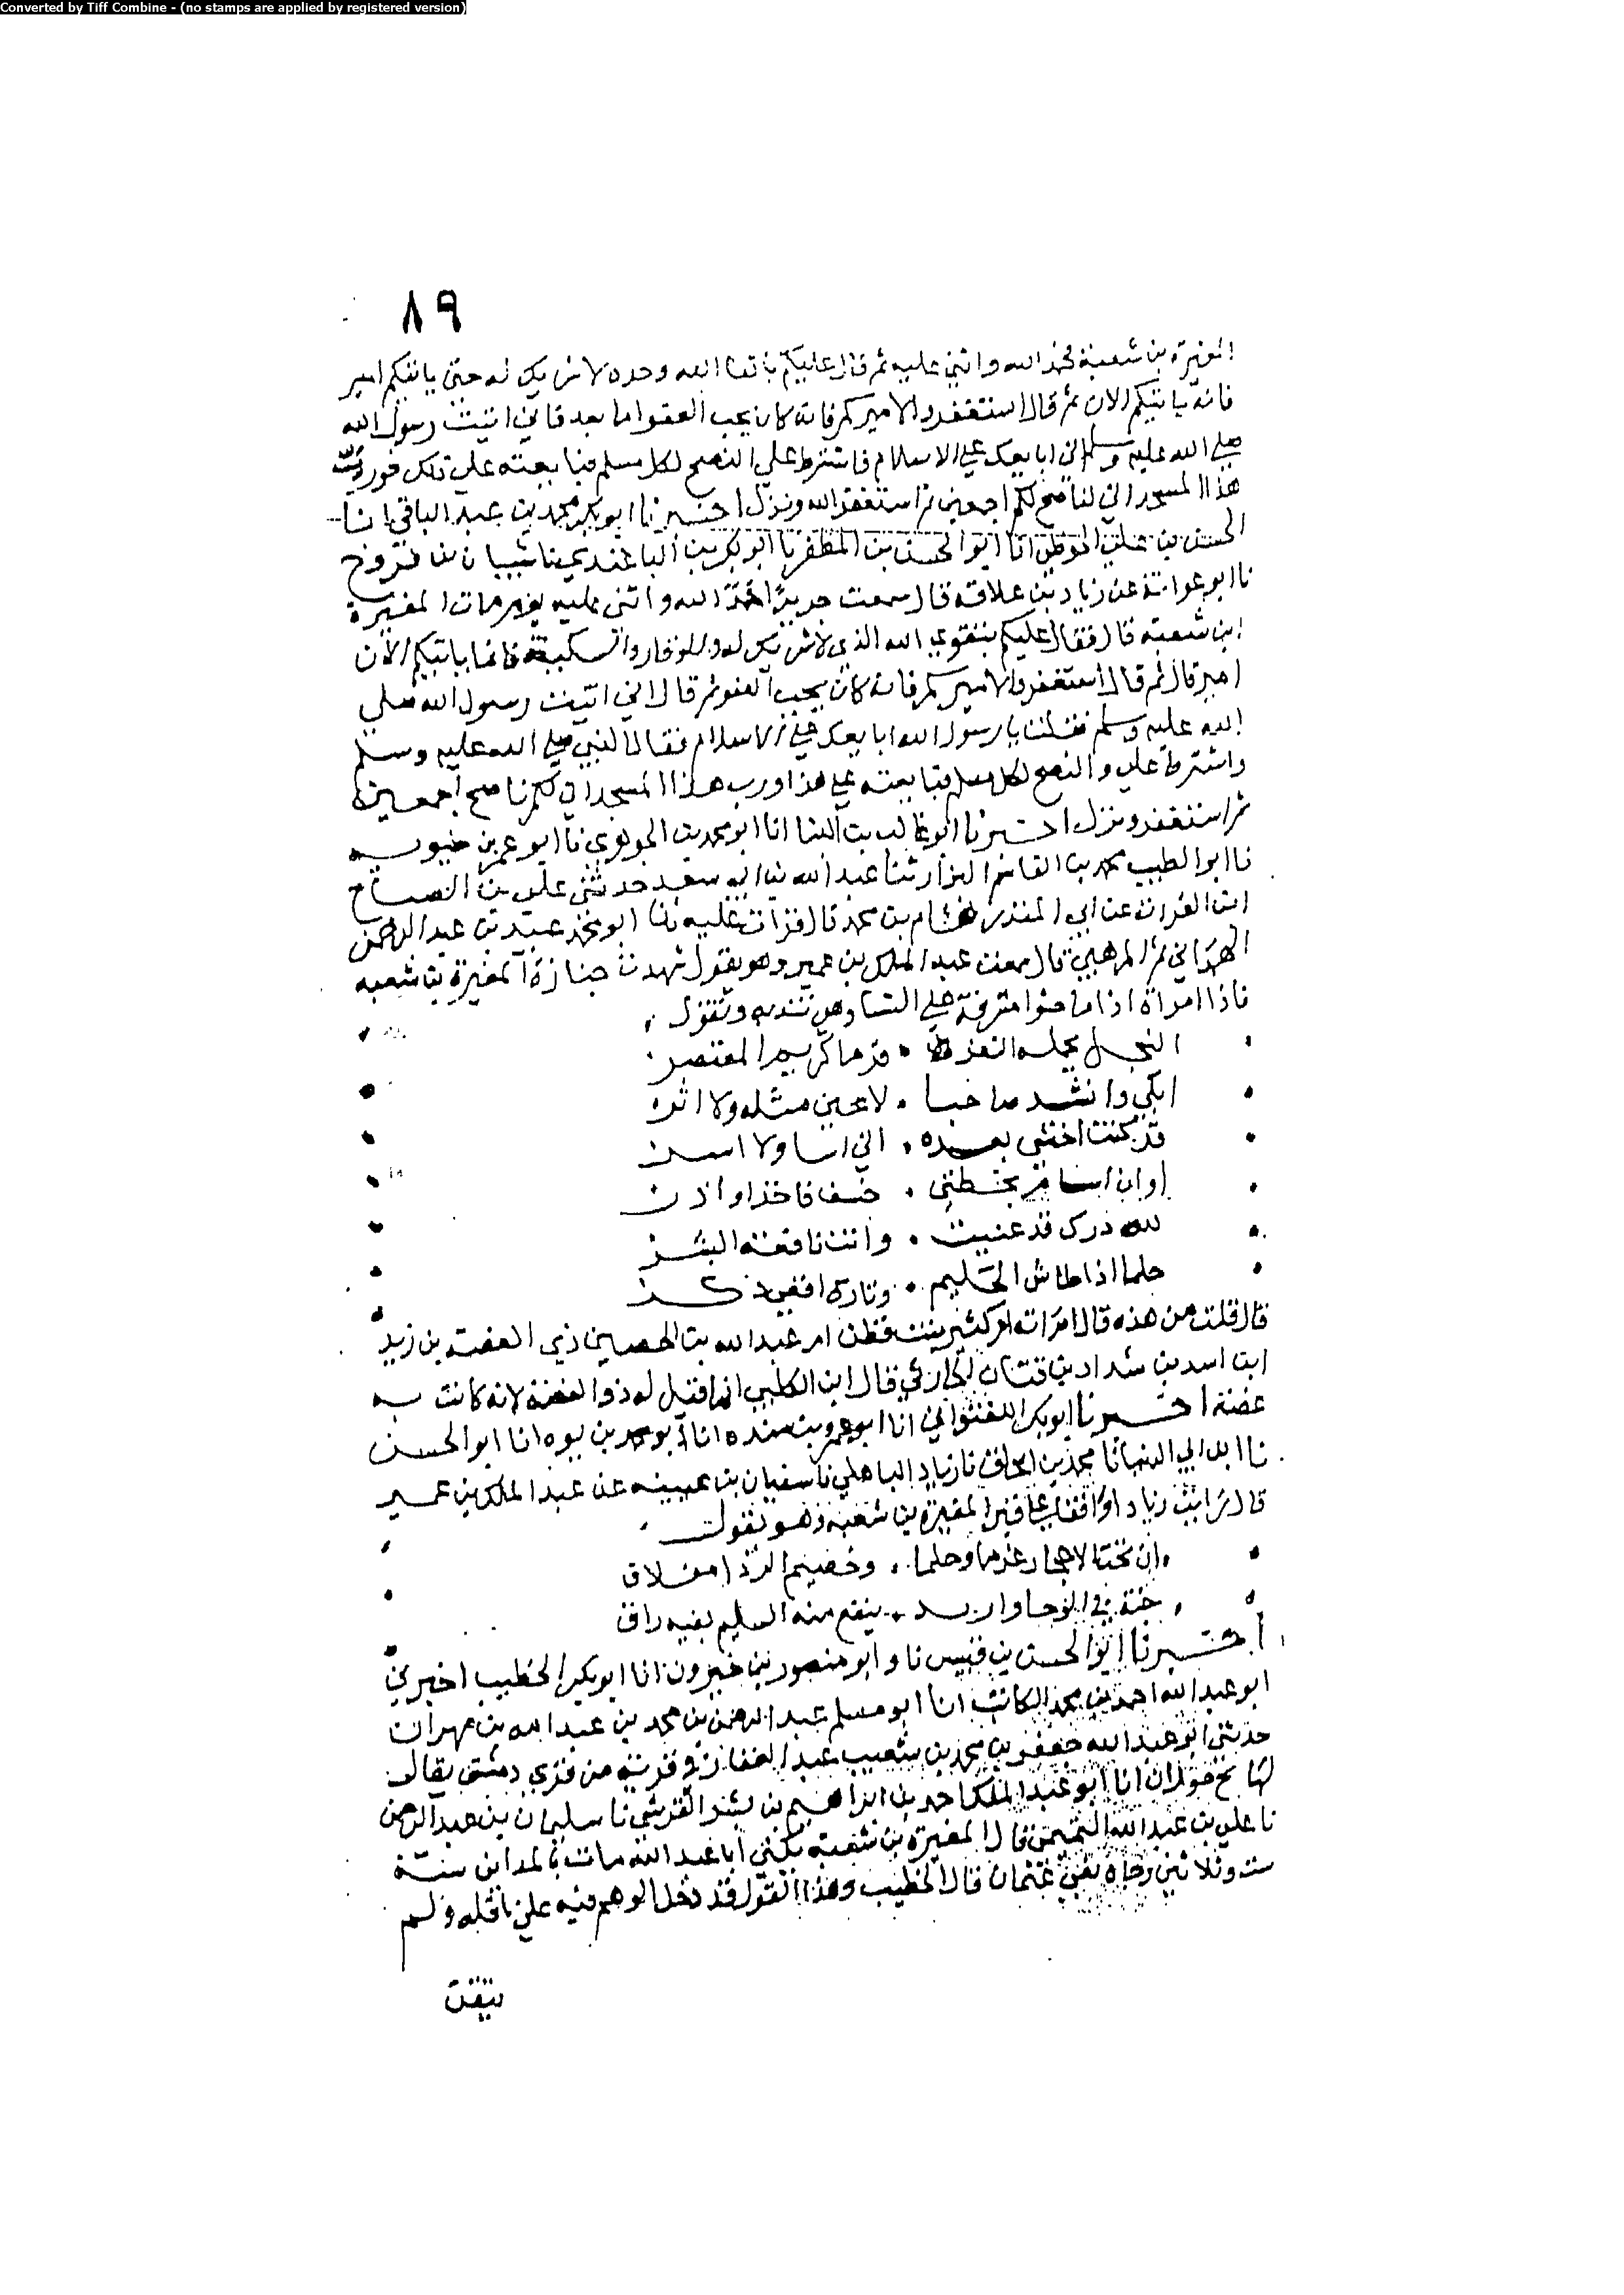 Converted by Tiff Combine - (no stamps are applied by registered version)
٨٩
المغيرة بن شعبة فحمد الله واثنى عليه ثم قال عليكم باتقا الله وحده لا شريك له حتى ياتيكم امير
فانه ياتيكم الان ثم قال استغفروا لاميركم فانه كان يحب العفو اما بعد فاني اتيت رسول الله
صلى الله عليه وسلم اني ابايعك على الاسلام فاشترط علي النصح لكل مسلم فبايعته على ذلك فورب
هذا المسجد اني لناصح لكم اجمعين ثم استغفر الله ونزل اخبرنا ابو بكر محمد بن عبد الباقي انا
الحسن بن علي انا ابو الحسين بن المظفر نا ابو بكر بن الباغندي نا شيبان بن فروخ
نا ابو عوانة عن زياد بن علاقة قال سمعت جريرا حمد الله واثنى عليه يوم مات المغيرة
ابن شعبة قال فقال عليكم بتقوى الله الذي لا شريك له والوقار والسكينة فانما ياتيكم الان
امير قال ثم قال استغفروا لاميركم فانه كان يحب العفو ثم قال اني اتيت رسول الله صلى
الله عليه وسلم فقلت يا رسول الله ابايعك على الاسلام فقال النبي صلى الله عليه وسلم
واشترط علي والنصح لكل مسلم فبايعته على هذا ورب هذا المسجد اني لكم ناصح اجمعين
ثم استغفر ونزل اخبرنا ابو غالب بن البنا انا ابو محمد الجوهري نا ابو عمر بن حيويه
نا ابو الطيب محمد بن القاسم البزار ثنا عبد الله بن ابي سعد حدثني علي بن الصباح
ابن الفرات عن ابي المنذر هشام بن محمد قال قرات عليه نا ابو محمد عبيد بن عبد الرحمن
الهمداني ثم المرهبي قال سمعت عبد الملك بن عمير وهو يقول شهدت جنازة المغيرة بن شعبه
فاذا امراة مشرفة على النسا وهي تندبه وتقول
النجل يحمله النفر قرما كريم المعتصر
ابكي وانشد صاحبا لا عين مثله ولا اثره
قد كنت اخشى بعده اني اسا ولا اسر
لله درك قد عنيت وانت نافعة البشر
حلما اذا طاش الحليم وتارة افعى ذكر
قال قلت من هذه قال امراته ام كثير بنت قطن ام عبد الله بن الحصين ذي الغصة بن زيد
ابن اسد بن شداد بن قنان الحارثي قال ابن الكلبي انما قيل له ذو الغصة لانه كانت به
غصة اخبرنا ابو بكر اللفتواني انا ابو عمرو بن منده انا ابو محمد بن يوه انا ابو الحسن
نا ابن ابي الدنيا نا محمد بن نا زياد الباهلي نا سفيان بن عيينه عن عبد الملك بن عمير
قال رايت زيادا واقفا على قبر المغيرة بن شعبة وهو يقول
ان تحت الاحجار عزما وحلما وخصيم الد ذا مغلاق
حية في الوجار اربد ينفع منه السليم نفثه راق
اخبرنا ابو الحسن بن قبيس نا وابو منصور بن خيرون انا ابو بكر الخطيب اخبرني
ابو عبد الله احمد بن محمد الكاتب انا ابو مسلم عبد الرحمن بن محمد بن عبد الله بن مهران
حدثني ابو عبد الله جعفر بن محمد بن شعيب عبد الغفار في قرية من قرى دمشق يقال
لها خولان انا ابو عبد الملك احمد بن ابراهيم بن بشر القرشي نا سليمان بن عبد الرحمن
نا علي بن عبد الله التميمي قال المغيرة بن شعبة يكنى ابا عبد الله مات بالمداين سنة
ست وثلاثين وجاه نعي عثمان قال الخطيب وهذا القول قد دخل الوهم فيه على ناقله ولم
يتقن